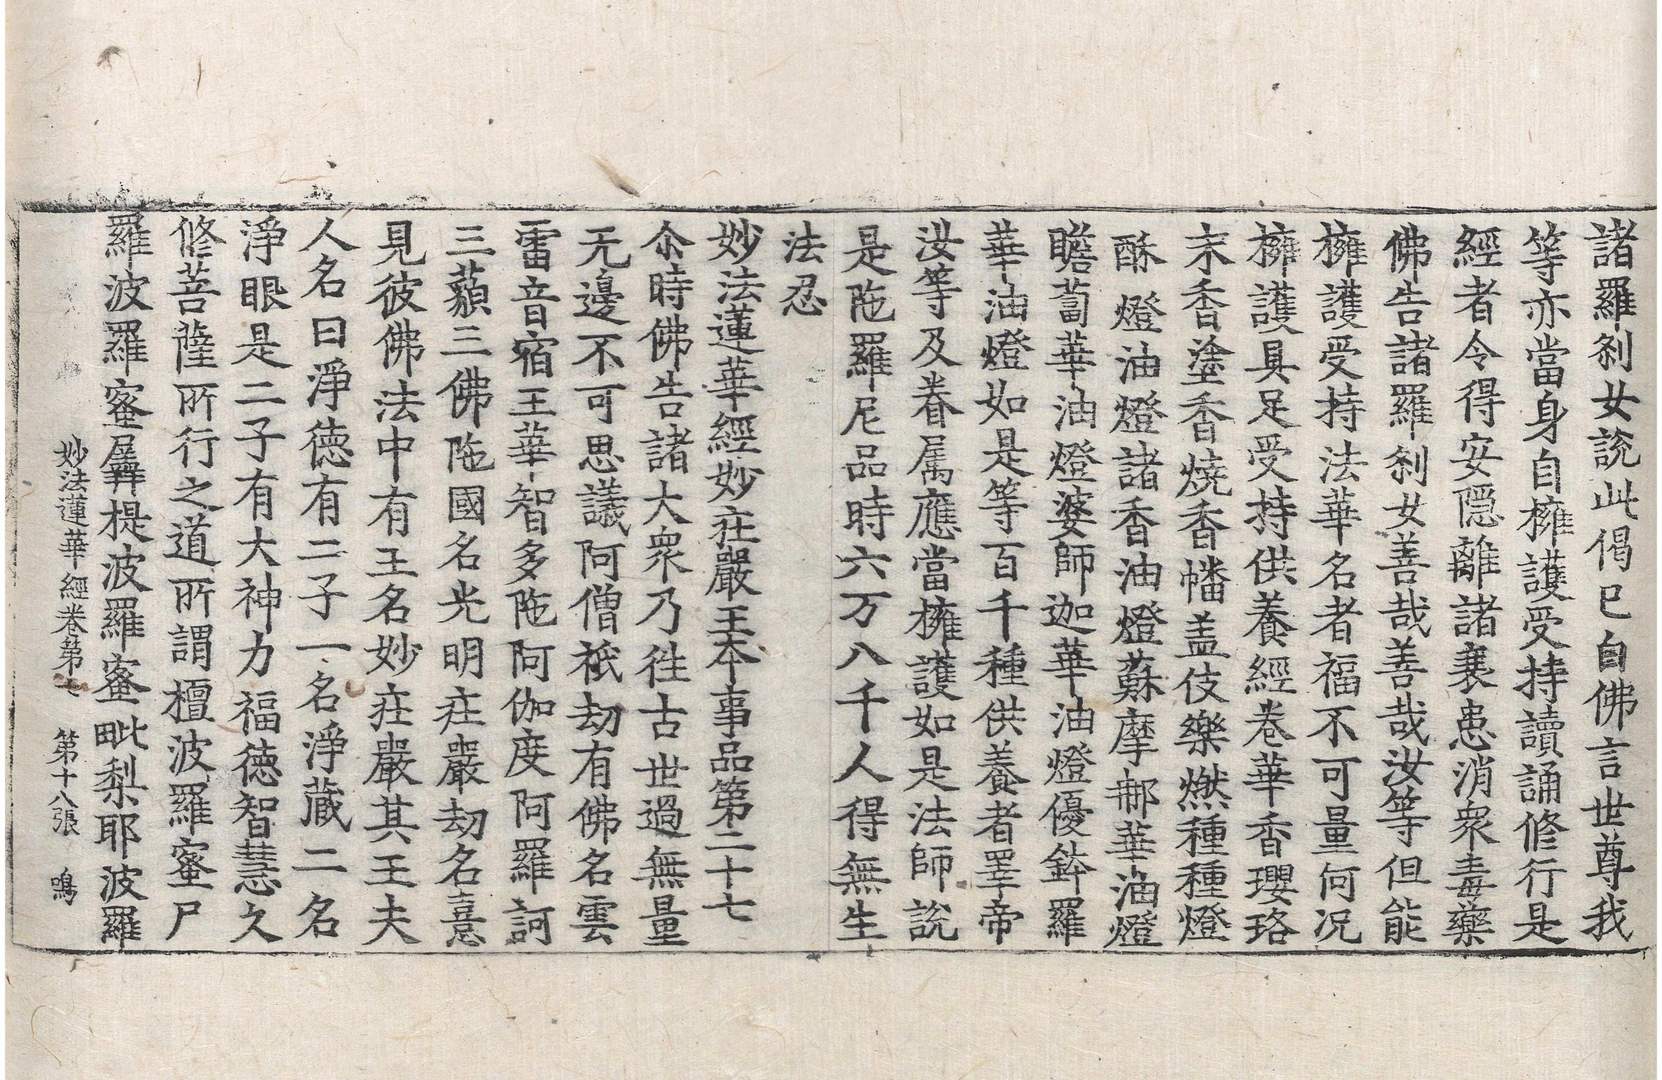 諸羅刹女說此偈已白佛言世尊我
等亦當身自擁護受持讀誦修行是
經者令得安隱離諸衰患消衆毒藥
佛告諸羅刹女善哉善哉汝等但能
擁護受持法華名者福不可量何况
擁護具足受持供養經卷華香瓔珞
末香塗香燒香幡盖伎樂燃種種燈
酥燈油燈諸香油燈蘇摩𨚗華油燈
瞻蔔華油燈婆師迦華油燈優鉢羅
華油燈如是等百千種供養者睪帝
汝等及眷属應當擁護如是法師說
是陁羅尼品時六万八千人得無生
法忍
妙法蓮華經妙庄嚴王本事品第二十七
尒時佛告諸大衆乃徃古世過無量
无邊不可思議阿僧祇劫有佛名雲
雷音宿王華智多陁阿伽度阿羅訶
三藐三佛陁國名光明庄嚴劫名憙
見彼佛法中有王名妙庄嚴其王夫
人名曰淨德有二子一名淨藏二名
淨眼是二子有大神力福德智慧久
修菩薩所行之道所謂檀波羅蜜尸
羅波羅蜜羼提波羅蜜毗梨耶波羅
妙法蓮華經卷第七 第十八張 鳴